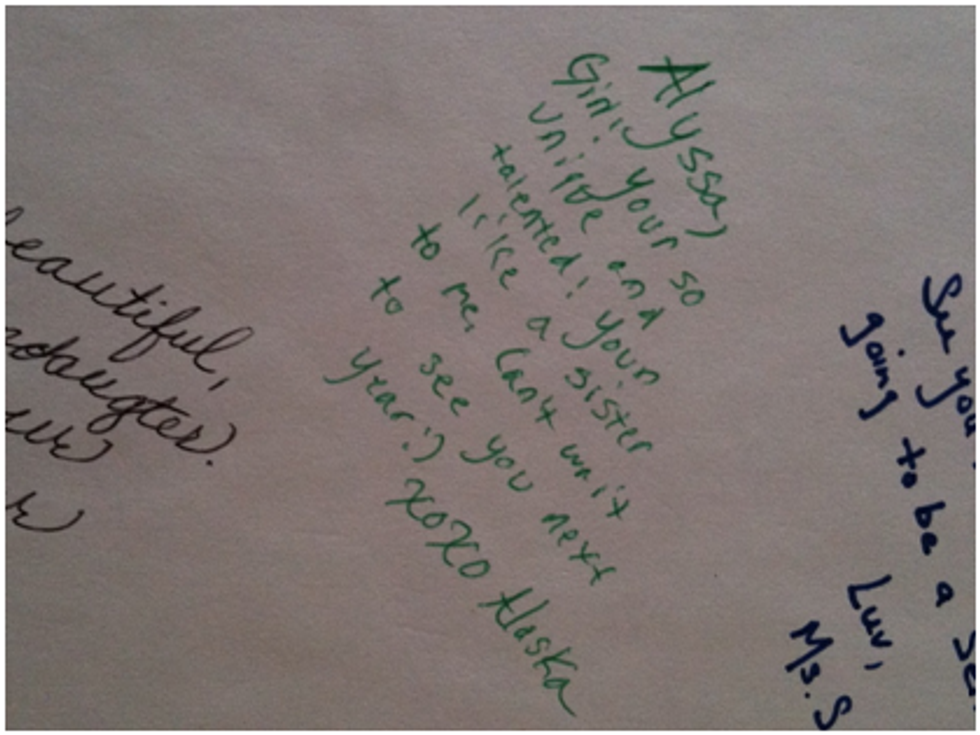 beautiful,
Alyssa,
Girl, your so
unique and
talented! your
like a sister
to me, can't wait
to see you next
year :)
xoxo Alaska
See you
going to be a
Luv,
Ms. S